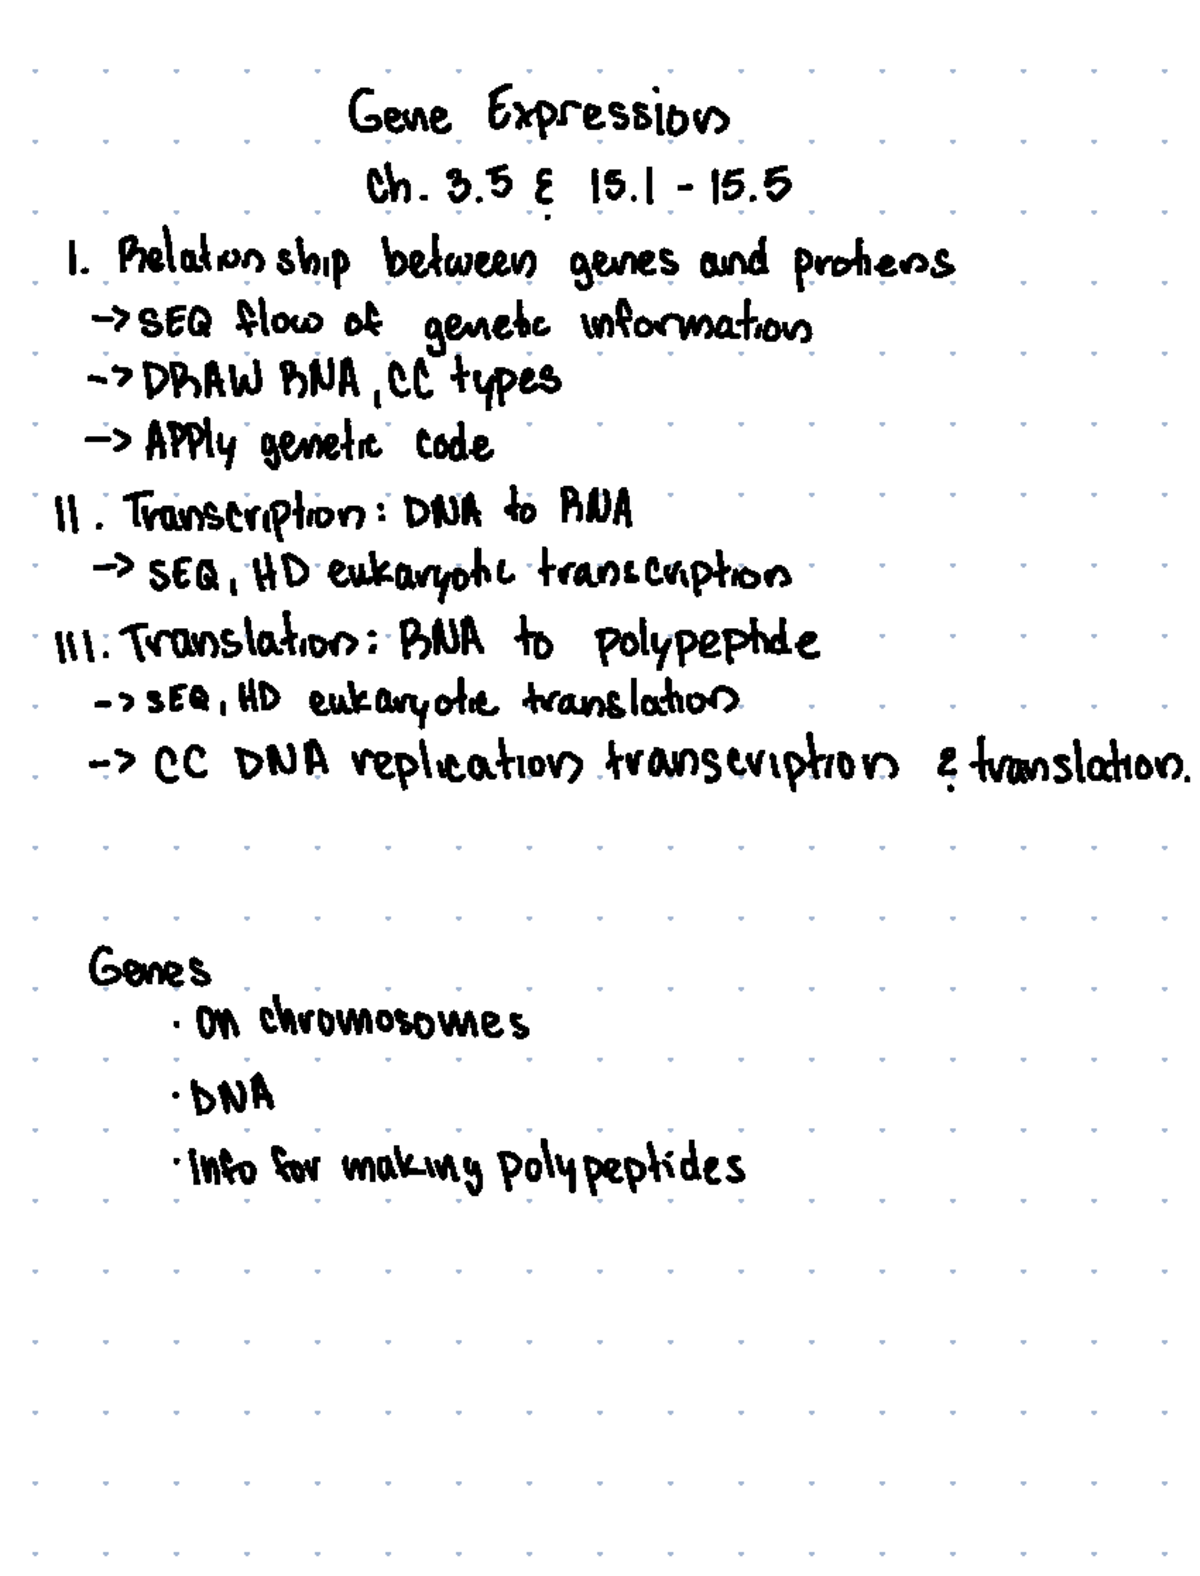 Gene Expression
Ch. 3.5 & 15.1 - 15.5
I. Relationship between genes and protiens
-> SEQ flow of genetic information
-> DRAW RNA, CC types
-> APPly genetic code
II. Transcription: DNA to RNA
-> SEQ, HD eukaryotic transcription
III. Translation: RNA to polypeptide
-> SEQ, HD eukaryotic translation
-> CC DNA replication transcription & translation.
Genes
· On chromosomes
· DNA
· info for making polypeptides